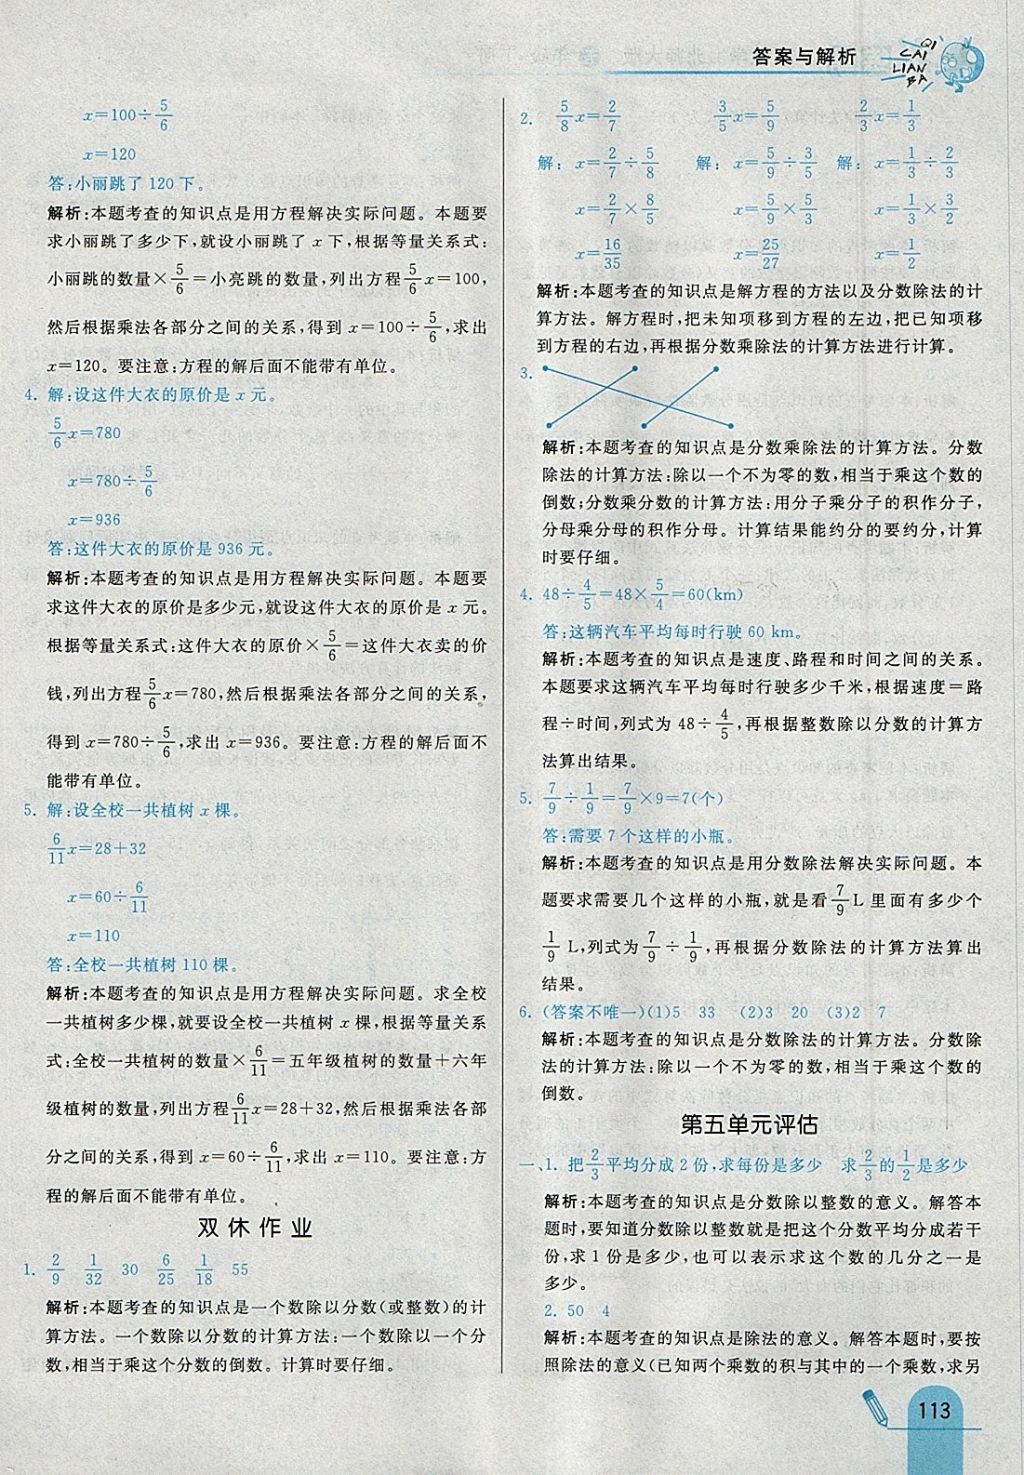 答案与解析
QI CAI LIAN BA
x=100÷5/6
x=120
答:小丽跳了120下。
解析:本题考查的知识点是用方程解决实际问题。本题要
求小丽跳了多少下,就设小丽跳了x下,根据等量关系式:
小丽跳的数量×5/6=小亮跳的数量,列出方程5/6x=100,
然后根据乘法各部分之间的关系,得到x=100÷5/6,求出
x=120。要注意:方程的解后面不能带有单位。
4. 解:设这件大衣的原价是x元。
5/6x=780
x=780÷5/6
x=936
答:这件大衣的原价是936元。
解析:本题考查的知识点是用方程解决实际问题。本题要
求这件大衣的原价是多少元,就设这件大衣的原价是x元。
根据等量关系式:这件大衣的原价×5/6=这件大衣卖的价
钱,列出方程5/6x=780,然后根据乘法各部分之间的关系,
得到x=780÷5/6,求出x=936。要注意:方程的解后面不
能带有单位。
5. 解:设全校一共植树x棵。
6/11x=28+32
x=60÷6/11
x=110
答:全校一共植树110棵。
解析:本题考查的知识点是用方程解决实际问题。求全校
一共植树多少棵,就要设全校一共植树x棵,根据等量关系
式:全校一共植树的数量×6/11=五年级植树的数量+六年
级植树的数量,列出方程6/11x=28+32,然后根据乘法各部
分之间的关系,得到x=60÷6/11,求出x=110。要注意:方
程的解后面不能带有单位。
双休作业
1. 2/9 1/32 30 6/25 1/18 55
解析:本题考查的知识点是一个数除以分数(或整数)的计
算方法。一个数除以分数的计算方法:一个数除以一个分
数,相当于乘这个分数的倒数。计算时要仔细。
2. 5/8x=2/7 3/5x=5/9 2/3x=1/3
解:x=2/7÷5/8 解:x=5/9÷3/5 解:x=1/3÷2/3
x=2/7×8/5 x=5/9×5/3 x=1/3×3/2
x=16/35 x=25/27 x=1/2
解析:本题考查的知识点是解方程的方法以及分数除法的计
算方法。解方程时,把未知项移到方程的左边,把已知项移
到方程的右边,再根据分数乘除法的计算方法进行计算。
3.
解析:本题考查的知识点是分数乘除法的计算方法。分数
除法的计算方法:除以一个不为零的数,相当于乘这个数的
倒数;分数乘分数的计算方法:用分子乘分子的积作分子,
分母乘分母的积作分母。计算结果能约分的要约分,计算
时要仔细。
4. 48÷4/5=48×5/4=60(km)
答:这辆汽车平均每时行驶60 km。
解析:本题考查的知识点是速度、路程和时间之间的关系。
本题要求这辆汽车平均每时行驶多少千米,根据速度=路
程÷时间,列式为48÷4/5,再根据整数除以分数的计算方
法算出结果。
5. 7/9÷1/9=7/9×9=7(个)
答:需要7个这样的小瓶。
解析:本题考查的知识点是用分数除法解决实际问题。本
题要求需要几个这样的小瓶,就是看7/9L里面有多少个
1/9L,列式为7/9÷1/9,再根据分数除法的计算方法算出
结果。
6. (答案不唯一)(1)5 33 (2)3 20 (3)2 7
解析:本题考查的知识点是分数除法的计算方法。分数除
法的计算方法:除以一个不为零的数,相当于乘这个数的
倒数。
第五单元评估
一、1. 把2/3平均分成2份,求每份是多少 求2/3的1/2是多少
解析:本题考查的知识点是分数除以整数的意义。解答本
题时,要知道分数除以整数就是把这个分数平均分成若干
份,求1份是多少,也可以表示求这个数的几分之一是
多少。
2. 50 4
解析:本题考查的知识点是除法的意义。解答本题时,要按
照除法的意义(已知两个乘数的积与其中的一个乘数,求另
113